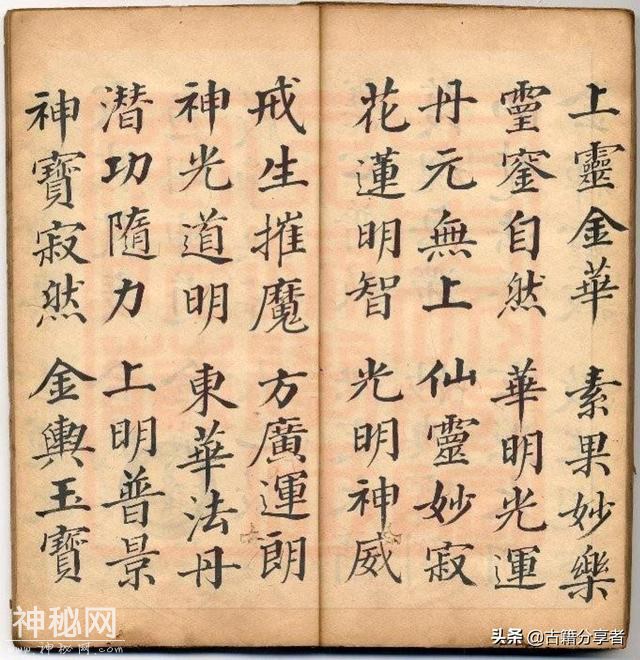 上靈金華 素果妙樂
霻窰自然 華明光運
丹元無上 仙靈妙寂
花蓮明智 光明神威
戒生摧魔 方廣運朗
神光道明 東華法丹
潛功隨力 上明普景
神寶寂然 金輿玉寶
神秘网
www.神秘网.com
头条 @古籍分享者